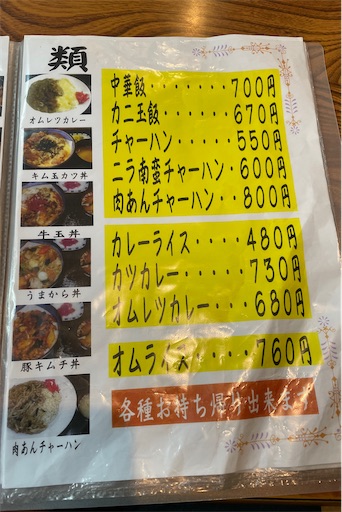 類
中華飯・・・・・・・700円
カニ玉飯・・・・・・670円
チャーハン・・・・・550円
ニラ南蛮チャーハン・600円
肉あんチャーハン・・800円
カレーライス・・・・480円
カツカレー・・・・・730円
オムレツカレー・・・680円
オムライス・・・・・760円
各種お持ち帰り出来ます
オムレツカレー
キム玉カツ丼
牛玉丼
うまから丼
豚キムチ丼
肉あんチャーハン